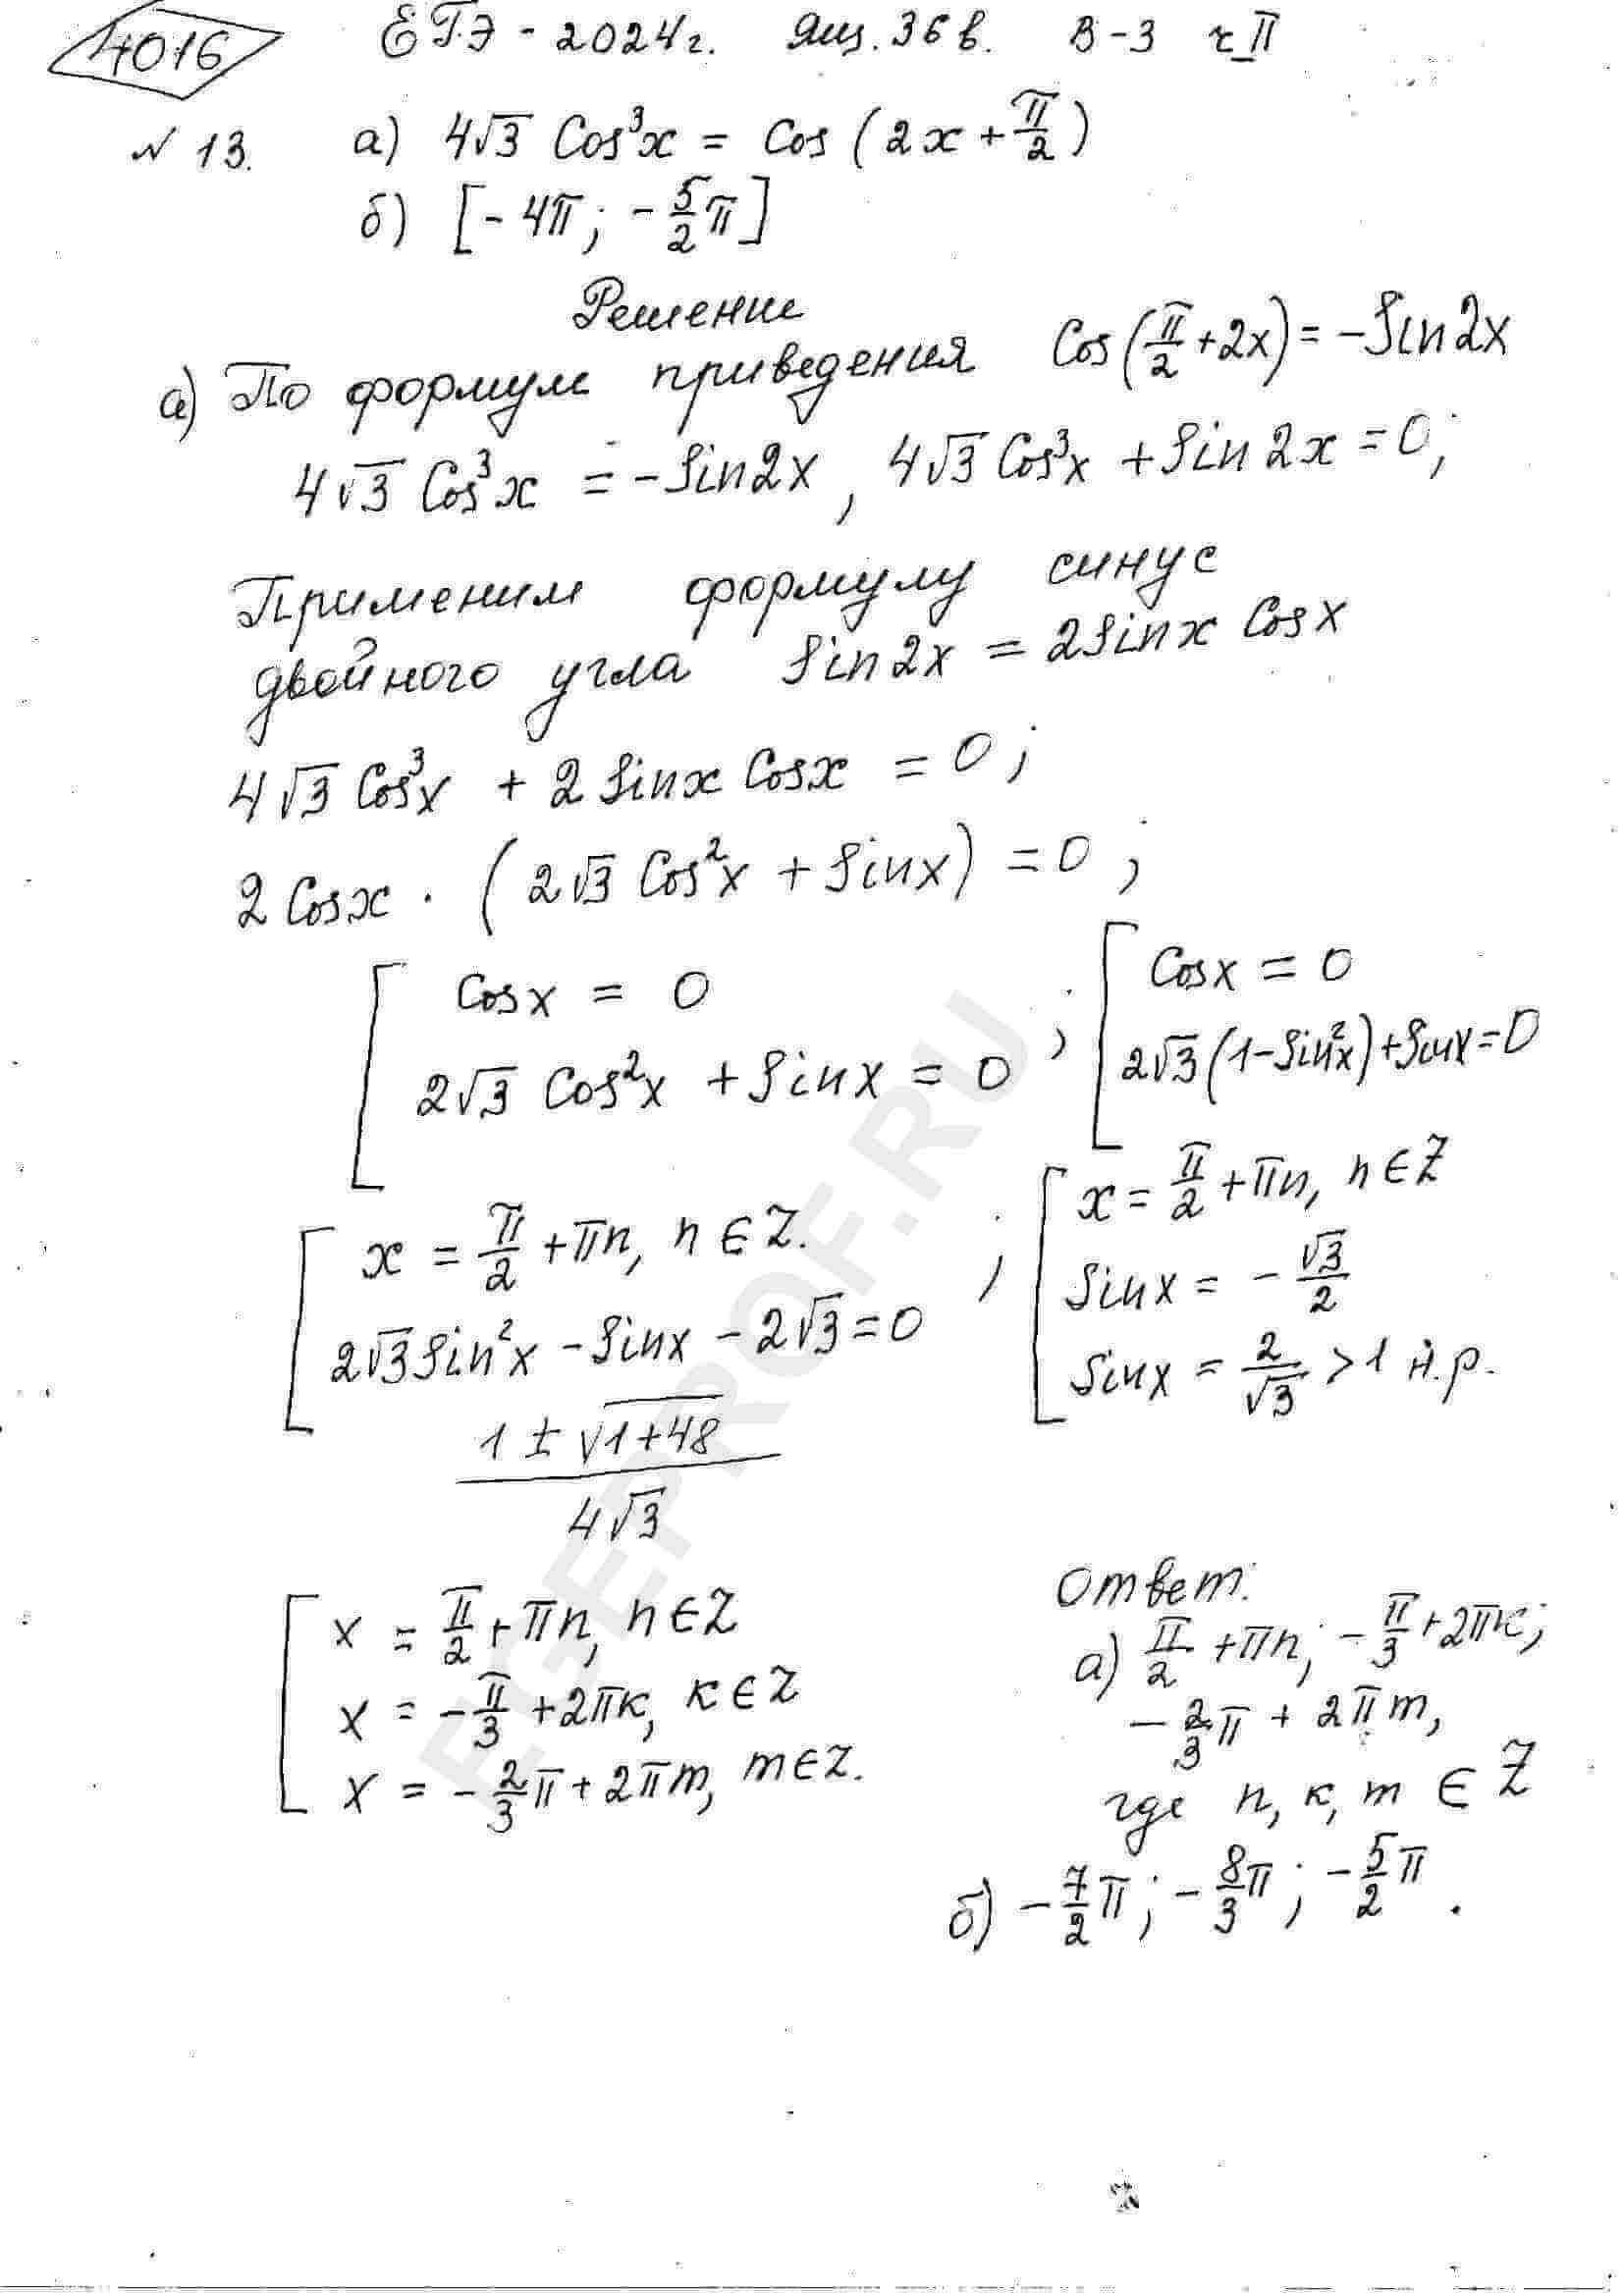 4016 ЕГЭ - 2024г. Ящ. 36 в. В-3 ч II
№ 13. а) 4√3 Cos³x = Cos (2x + π/2)
б) [-4π; -5/2 π]
Решение
а) По формул приведения Cos(π/2 + 2x) = -Sin2x
4√3 Cos³x = -Sin2x, 4√3 Cos³x + Sin2x = 0;
Применим формулу синус
двойного угла Sin2x = 2Sinx Cosx
4√3 Cos³x + 2Sinx Cosx = 0;
2Cosx · (2√3 Cos²x + Sinx) = 0;
[ Cosx = 0
2√3 Cos²x + Sinx = 0 ;
[ Cosx = 0
2√3(1-Sin²x)+Sinx=0
[ x = π/2 + πn, n ∈ Z.
2√3Sin²x - Sinx - 2√3 = 0 ;
1 ± √1+48
4√3
[ x = π/2 + πn, n ∈ Z
Sinx = - √3/2
Sinx = 2/√3 > 1 н.р.
[ x = π/2 + πn, n ∈ Z
x = -π/3 + 2πк, к ∈ Z
x = -2/3 π + 2πm, m ∈ Z.
Ответ:
а) π/2 + πn; -π/3 + 2πк;
-2/3 π + 2πm,
где n, к, m ∈ Z
б) -7/2 π; -8/3 π; -5/2 π.
EGEPROF.RU